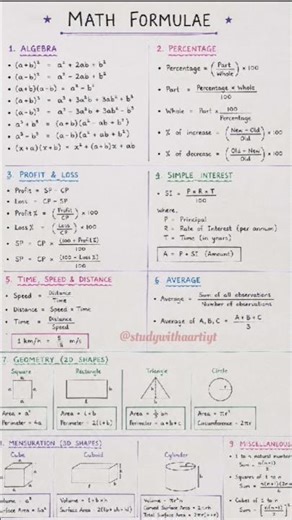 ★ MATH FORMULAE ★
1. ALGEBRA
• (a+b)² = a² + 2ab + b²
• (a-b)² = a² - 2ab + b²
• (a+b)(a-b) = a² - b²
• (a+b)³ = a³ + 3a²b + 3ab² + b³
• (a-b)³ = a³ - 3a²b + 3ab² - b³
• a³ + b³ = (a+b)(a² - ab + b²)
• a³ - b³ = (a-b)(a² + ab + b²)
• (x+a)(x+b) = x² + (a+b)x + ab
2. PERCENTAGE
• Percentage = (Part / Whole) × 100
• Part = Percentage × Whole / 100
• Whole = Part × 100 / Percentage
• % of increase = (New - Old / Old) × 100
• % of decrease = (Old - New / Old) × 100
3. PROFIT & LOSS
• Profit = SP - CP
• Loss = CP - SP
• Profit % = (Profit / CP) × 100
• Loss % = (Loss / CP) × 100
• SP = CP × (100 + Profit %) / 100
• SP = CP × (100 - Loss %) / 100
4. SIMPLE INTEREST
• SI = P × R × T / 100
where,
P = Principal
R = Rate of Interest (per annum)
T = Time (in years)
A = P + SI (Amount)
5. TIME, SPEED & DISTANCE
• Speed = Distance / Time
• Distance = Speed × Time
• Time = Distance / Speed
1 km/h = 5/18 m/s
6. AVERAGE
• Average = Sum of all observations / Number of observations
• Average of A, B, C = A + B + C / 3
@studywithaartiyt
7. GEOMETRY (2D SHAPES)
Square Rectangle Triangle Circle
Area = a²
Perimeter = 4a
Area = l × b
Perimeter = 2(l+b)
Area = ½ bh
Perimeter = a+b+c
Area = πr²
Circumference = 2πr
MENSURATION (3D SHAPES)
Cube Cuboid Cylinder
Volume = a³
Surface Area = 6a²
Volume = l × b × h
Surface Area = 2(lb + bh + hl)
Volume = πr²h
Curved Surface Area = 2πrh
Total Surface Area = 2πr(r+h)
9. MISCELLANEOUS
• 1 to n natural number
Sum = n(n+1) / 2
• Squares of 1 to n
• Cubes of 1 to n